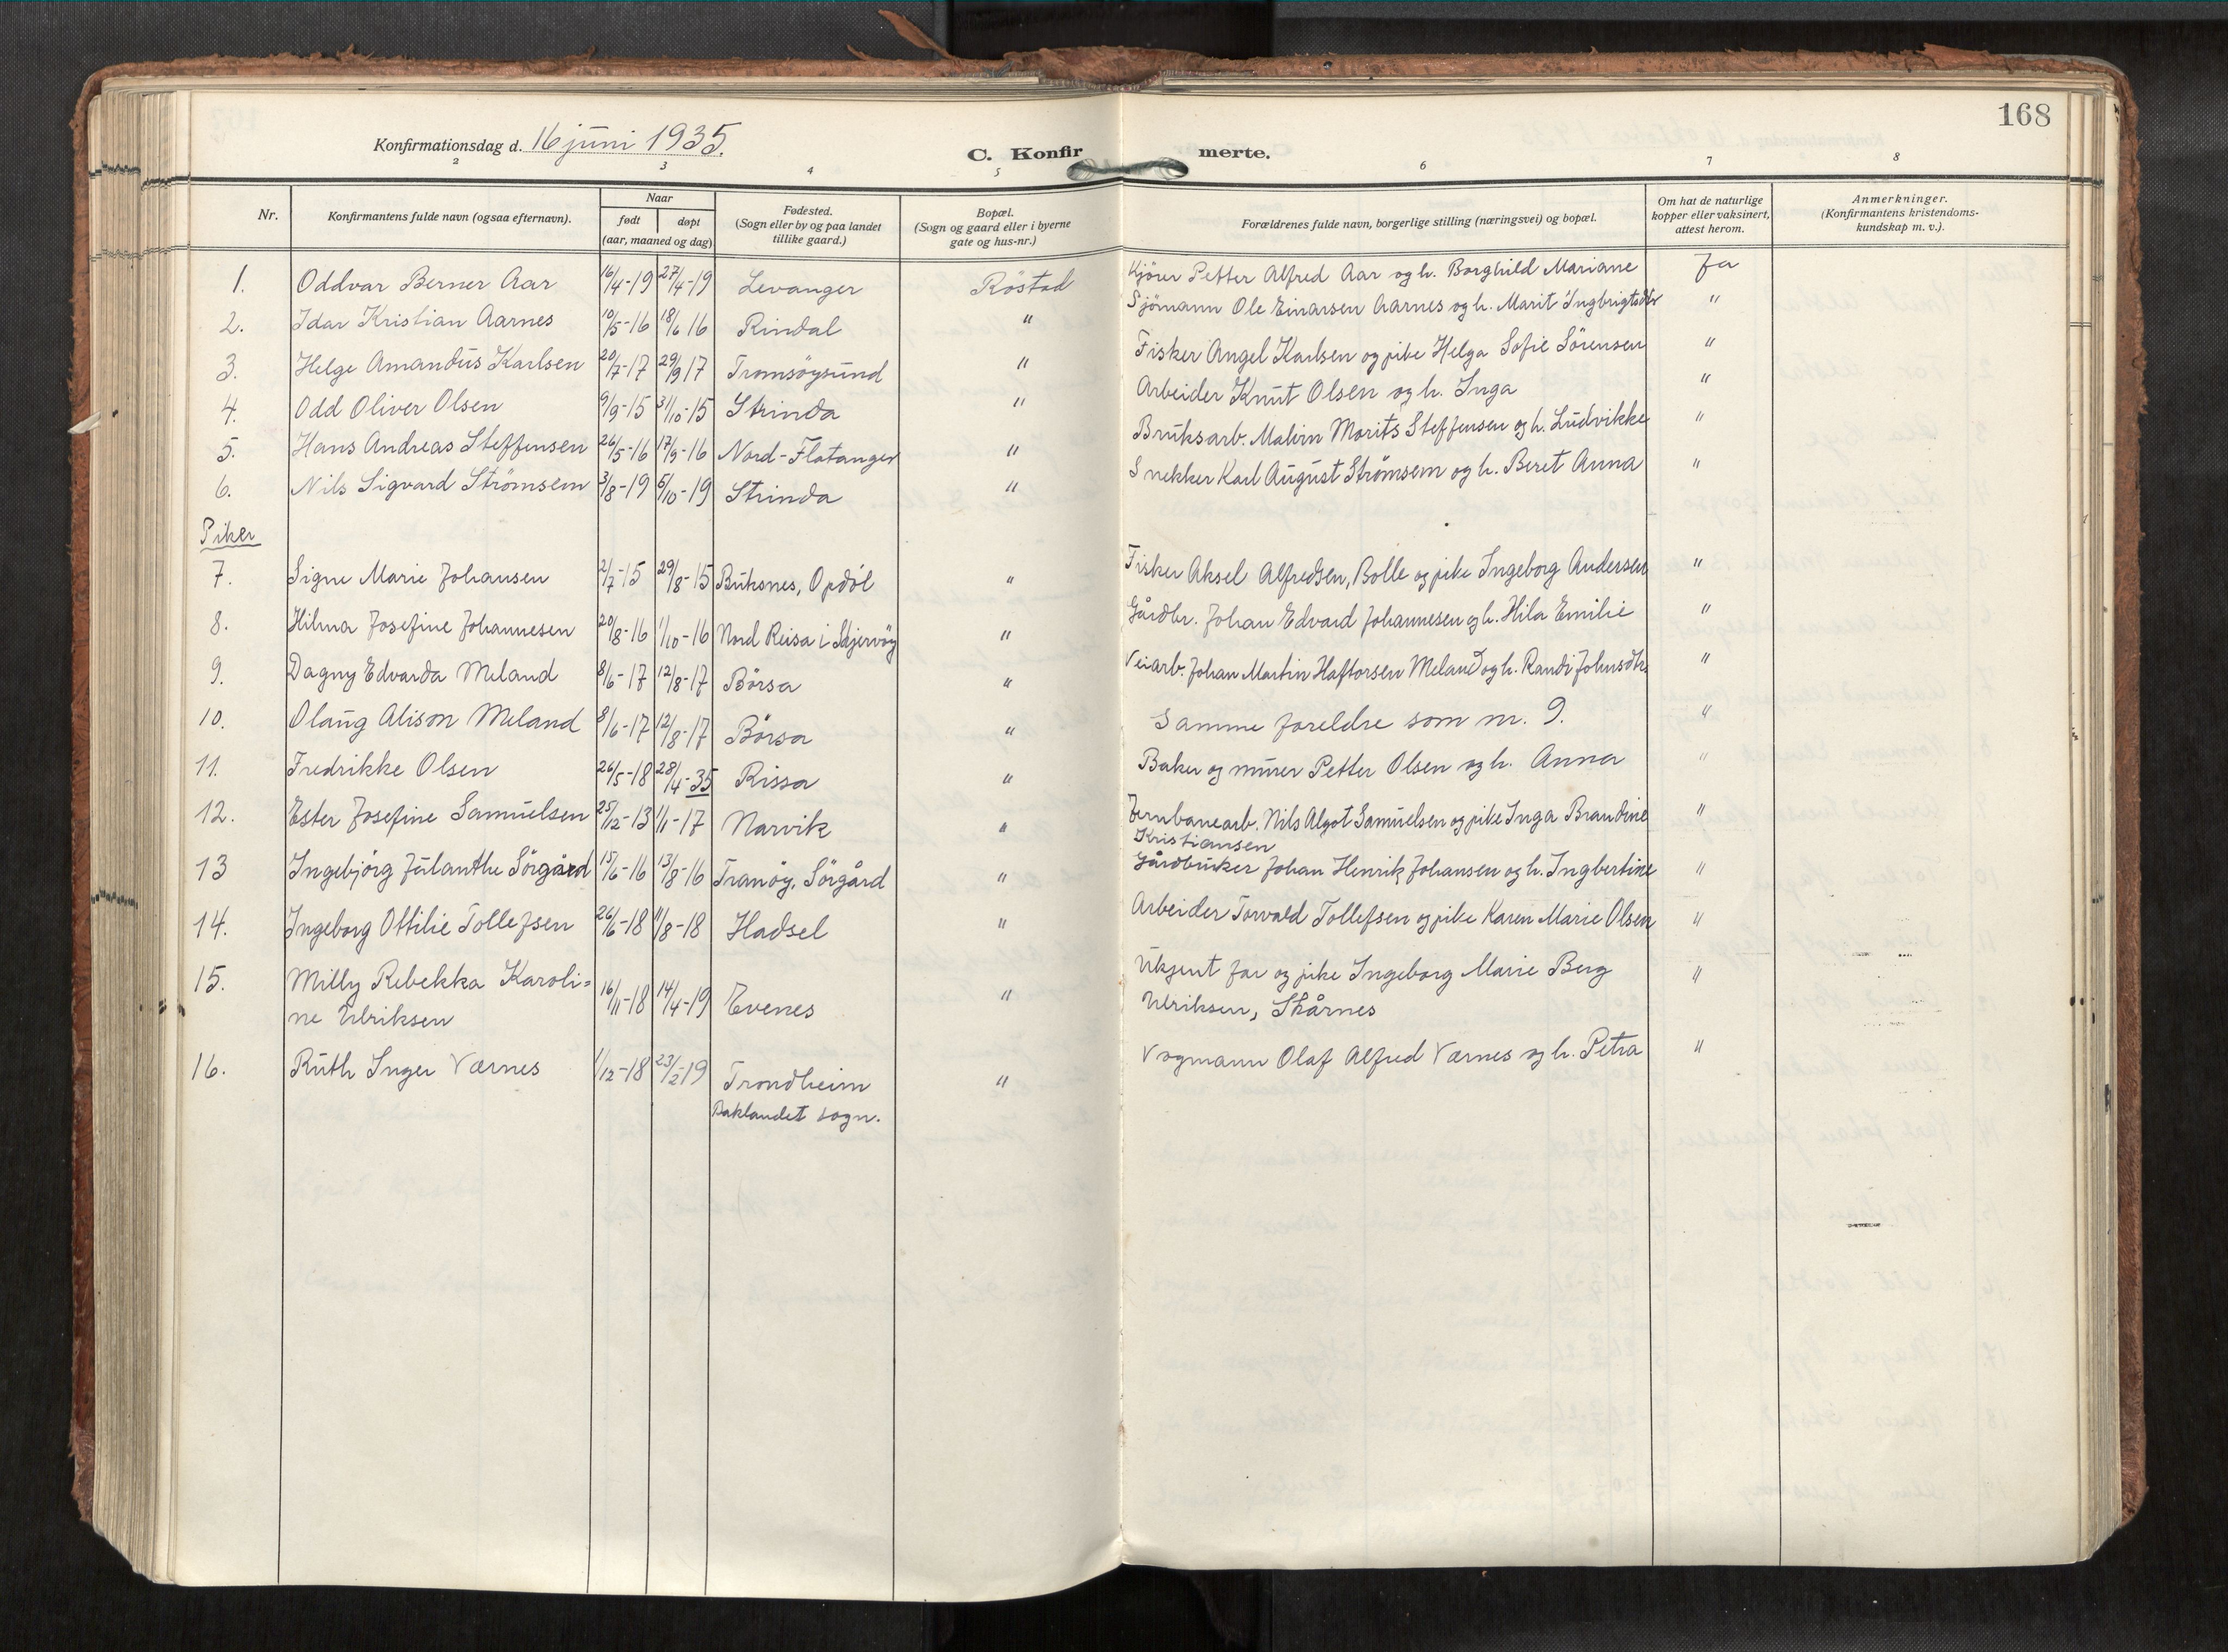 168
Konfirmationsdag d. 16 juni 1935.
C. Konfirmerte.
2 3 4 5 6 7 8
Nr. Konfirmantens fulde navn (ogsaa efternavn). Naar født døpt (aar, maaned og dag) Fødested. (Sogn eller by og paa landet tillike gaard.) Bopæl. (Sogn og gaard eller i byerne gate og hus-nr.) Forældrenes fulde navn, borgerlige stilling (næringsvei) og bopæl. Om hat de naturlige kopper eller vaksinert, attest herom. Anmerkninger. (Konfirmantens kristendoms-kundskap m. v.).
1. Oddvar Berner Aar 16/4-19 27/4-19 Levanger Röstad Kjörer Petter Alfred Aar og h. Borghild Mariane Ja
2. Idar Kristian Aarnes 10/5-16 18/6 16 Rindal " Sjömann Ole Einarsen Aarnes og h. Marit Ingbrigtsdtr "
3. Helge Amandus Karlsen 20/7-17 29/9 17 Tromsöysund " Fisker Angel Karlsen og pike Helga Sofie Sörensen "
4. Odd Oliver Olsen 9/9-15 31/10-15 Strinda " Arbeider Knut Olsen og h. Inga "
5. Hans Andreas Steffensen 26/5-16 17/9-16 Nord-Flatanger " Bruksarb. Malvin Morits Steffensen og h. Ludvikke "
6. Nils Sigvard Strömsem 3/8-19 5/10-19 Strinda " Snekker Karl August Strömsem og h. Beret Anna "
Piker
7. Signe Marie Johansen 2/7-15 29/8-15 Buksnes, Opdöl " Fisker Aksel Alfredsen, Bolle og pike Ingeborg Andersen "
8. Hilma Josefine Johannesen 20/8-16 1/10-16 Nord Reisa i Skjervöy " Gårdbr. Johan Edvard Johannesen og h. Hila Emilie "
9. Dagny Edvarda Meland 8/6-17 12/8-17 Börsa " Veiarb. Johan Martin Haftorsen Meland og h. Randi Johnsdtr. "
10. Olaug Alison Meland 8/6-17 12/8-17 Börsa " Samme foreldre som nr. 9. "
11. Fredrikke Olsen 26/5-18 28/4-35 Rissa " Baker og murer Petter Olsen og h. Anna "
12. Ester Josefine Samuelsen 25/12-13 1/1-17 Narvik " Jernbanearb. Nils Algot Samuelsen og pike Inga Brandine
Kristiansen "
13 Ingebjörg Julanthe Sörgård 15/6-16 13/8-16 Tranöy, Sörgård " Gårdbruker Johan Henrik Johansen og h. Ingbertine "
14. Ingeborg Ottilie Tollefsen 26/6-18 11/8-18 Hadsel " Arbeider Torvald Tollefsen og pike Karen Marie Olsen "
15. Milly Rebekka Karoli=
ne Ulriksen 16/11-18 14/4-19 Evenes " Ukjent far og pike Ingeborg Marie Berg
Ulriksen, Skårnes "
16. Ruth Inger Værnes 1/12-18 23/2-19 Trondheim " Vogmann Olaf Alfred Værnes og h. Petra "
Baklandet sogn.